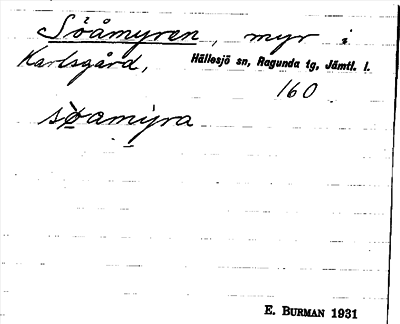 Söåmyren, myr i
Karlsgård, Hällesjö sn, Ragunda tg, Jämtl. l.
160
søamyra
E. BURMAN 1931